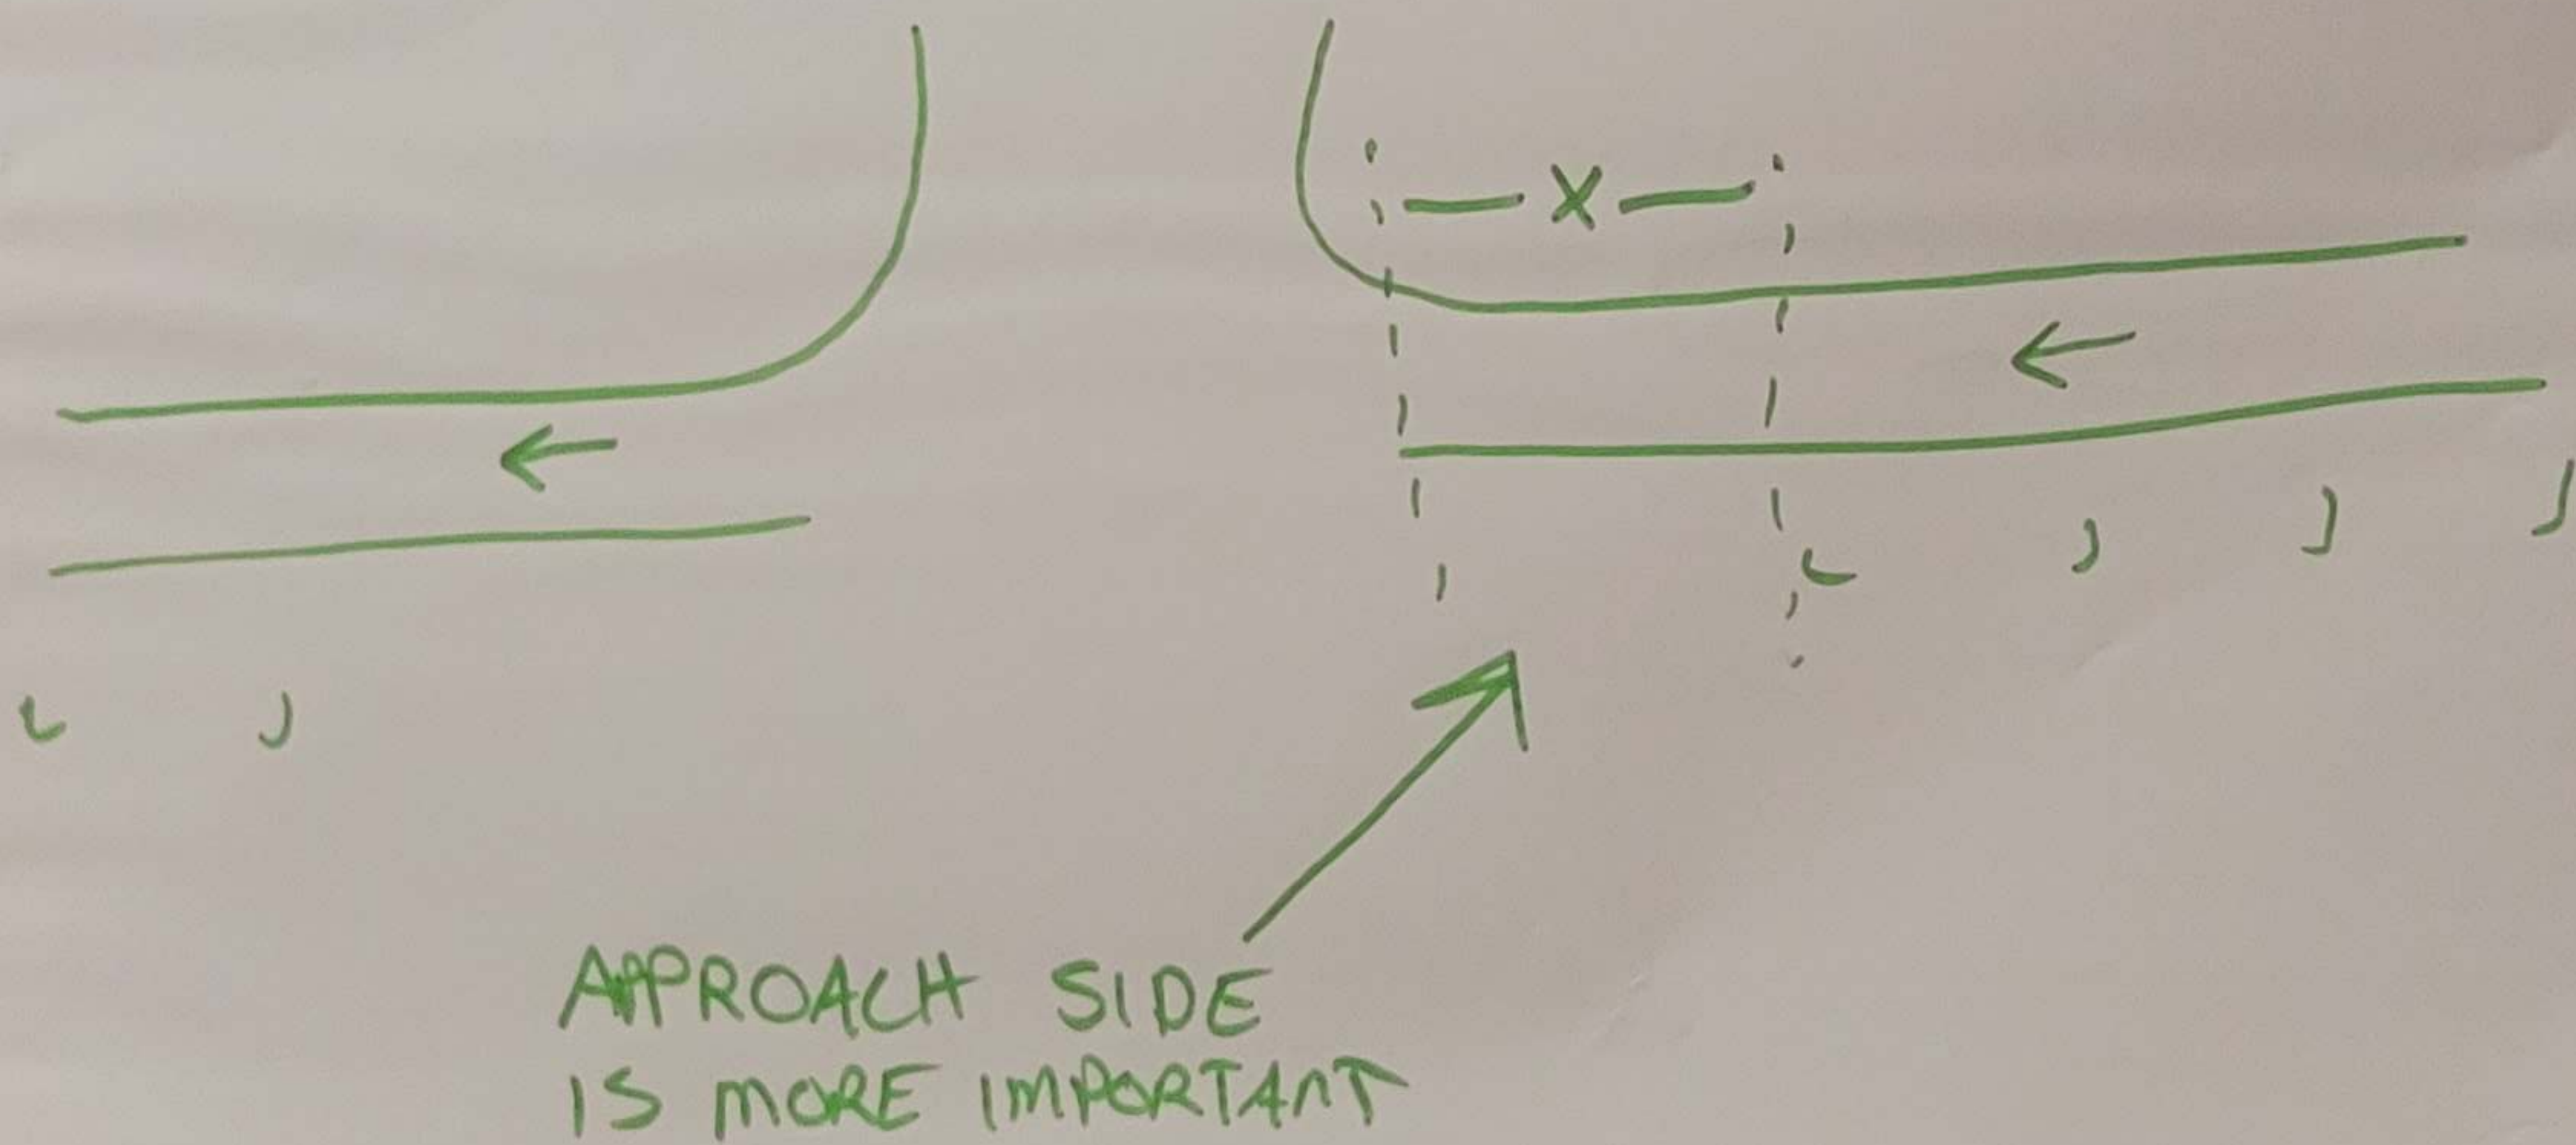 X
APPROACH SIDE
IS MORE IMPORTANT